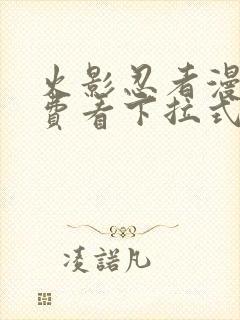 火影忍者漫
费看下拉式
凌諾凡